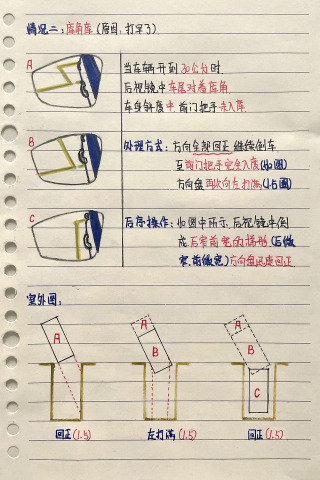 情况二：库角库（原因：打早了）
A
当车辆开到30公分时
后视镜中车尾对着库角
车身斜度中 前门把手未入库
B
处理方式：方向全部回正 继续倒车
至前门把手完全入库(如图)
方向盘再次向左打满(1.5圈)
C
后序操作：如图中所示，后视镜中倒
成后窄前宽的梯形(后微
窄,前微宽)方向盘迅速回正
室外图：
A
A
B
A
B
C
回正(1.5)
左打满(1.5)
回正(1.5)